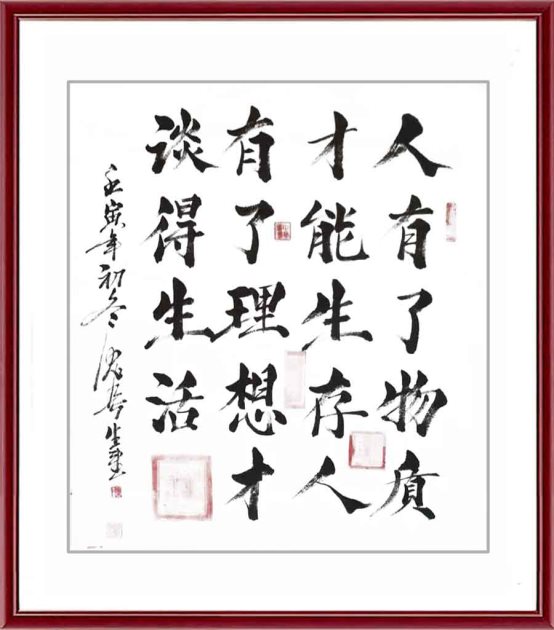 人有了物质
才能生存人
有了理想才
谈得生活
壬寅年初冬